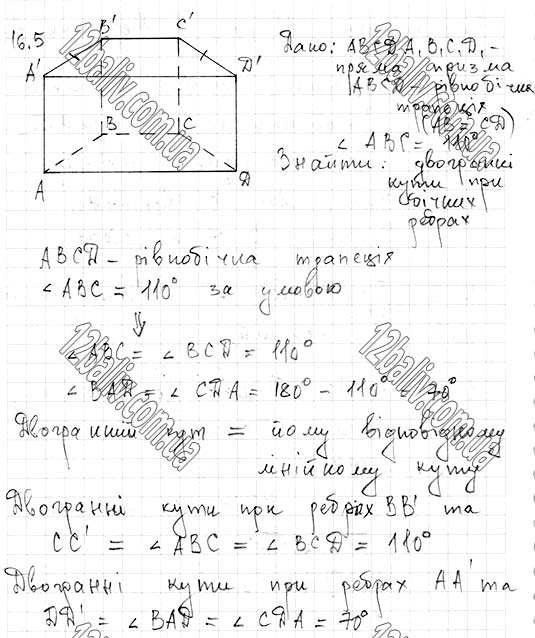 16.5
B' C'
A' D'
B C
A D
Дано: ABCDA,B,C,D,-
пряма призма
ABCD - рівнобічна
трапеція
(AB = CD)
∠ ABC = 110°
Знайти: двогранні
кути при
бічних
ребрах
ABCD - рівнобічна трапеція
∠ ABC = 110° за умовою
⇓
∠ABC = ∠ BCD = 110°
∠ BAD = ∠ CDA = 180° - 110° = 70°
Двогранний кут = йому відповідному
лінійному куту
Двогранні кути при ребрах BB' та
CC' = ∠ ABC = ∠ BCD = 110°
Двогранні кути при ребрах AA' та
DD' = ∠ BAD = ∠ CDA = 70°
12baliv.com.ua
12baliv.com.ua
12baliv.com.ua
12baliv.com.ua